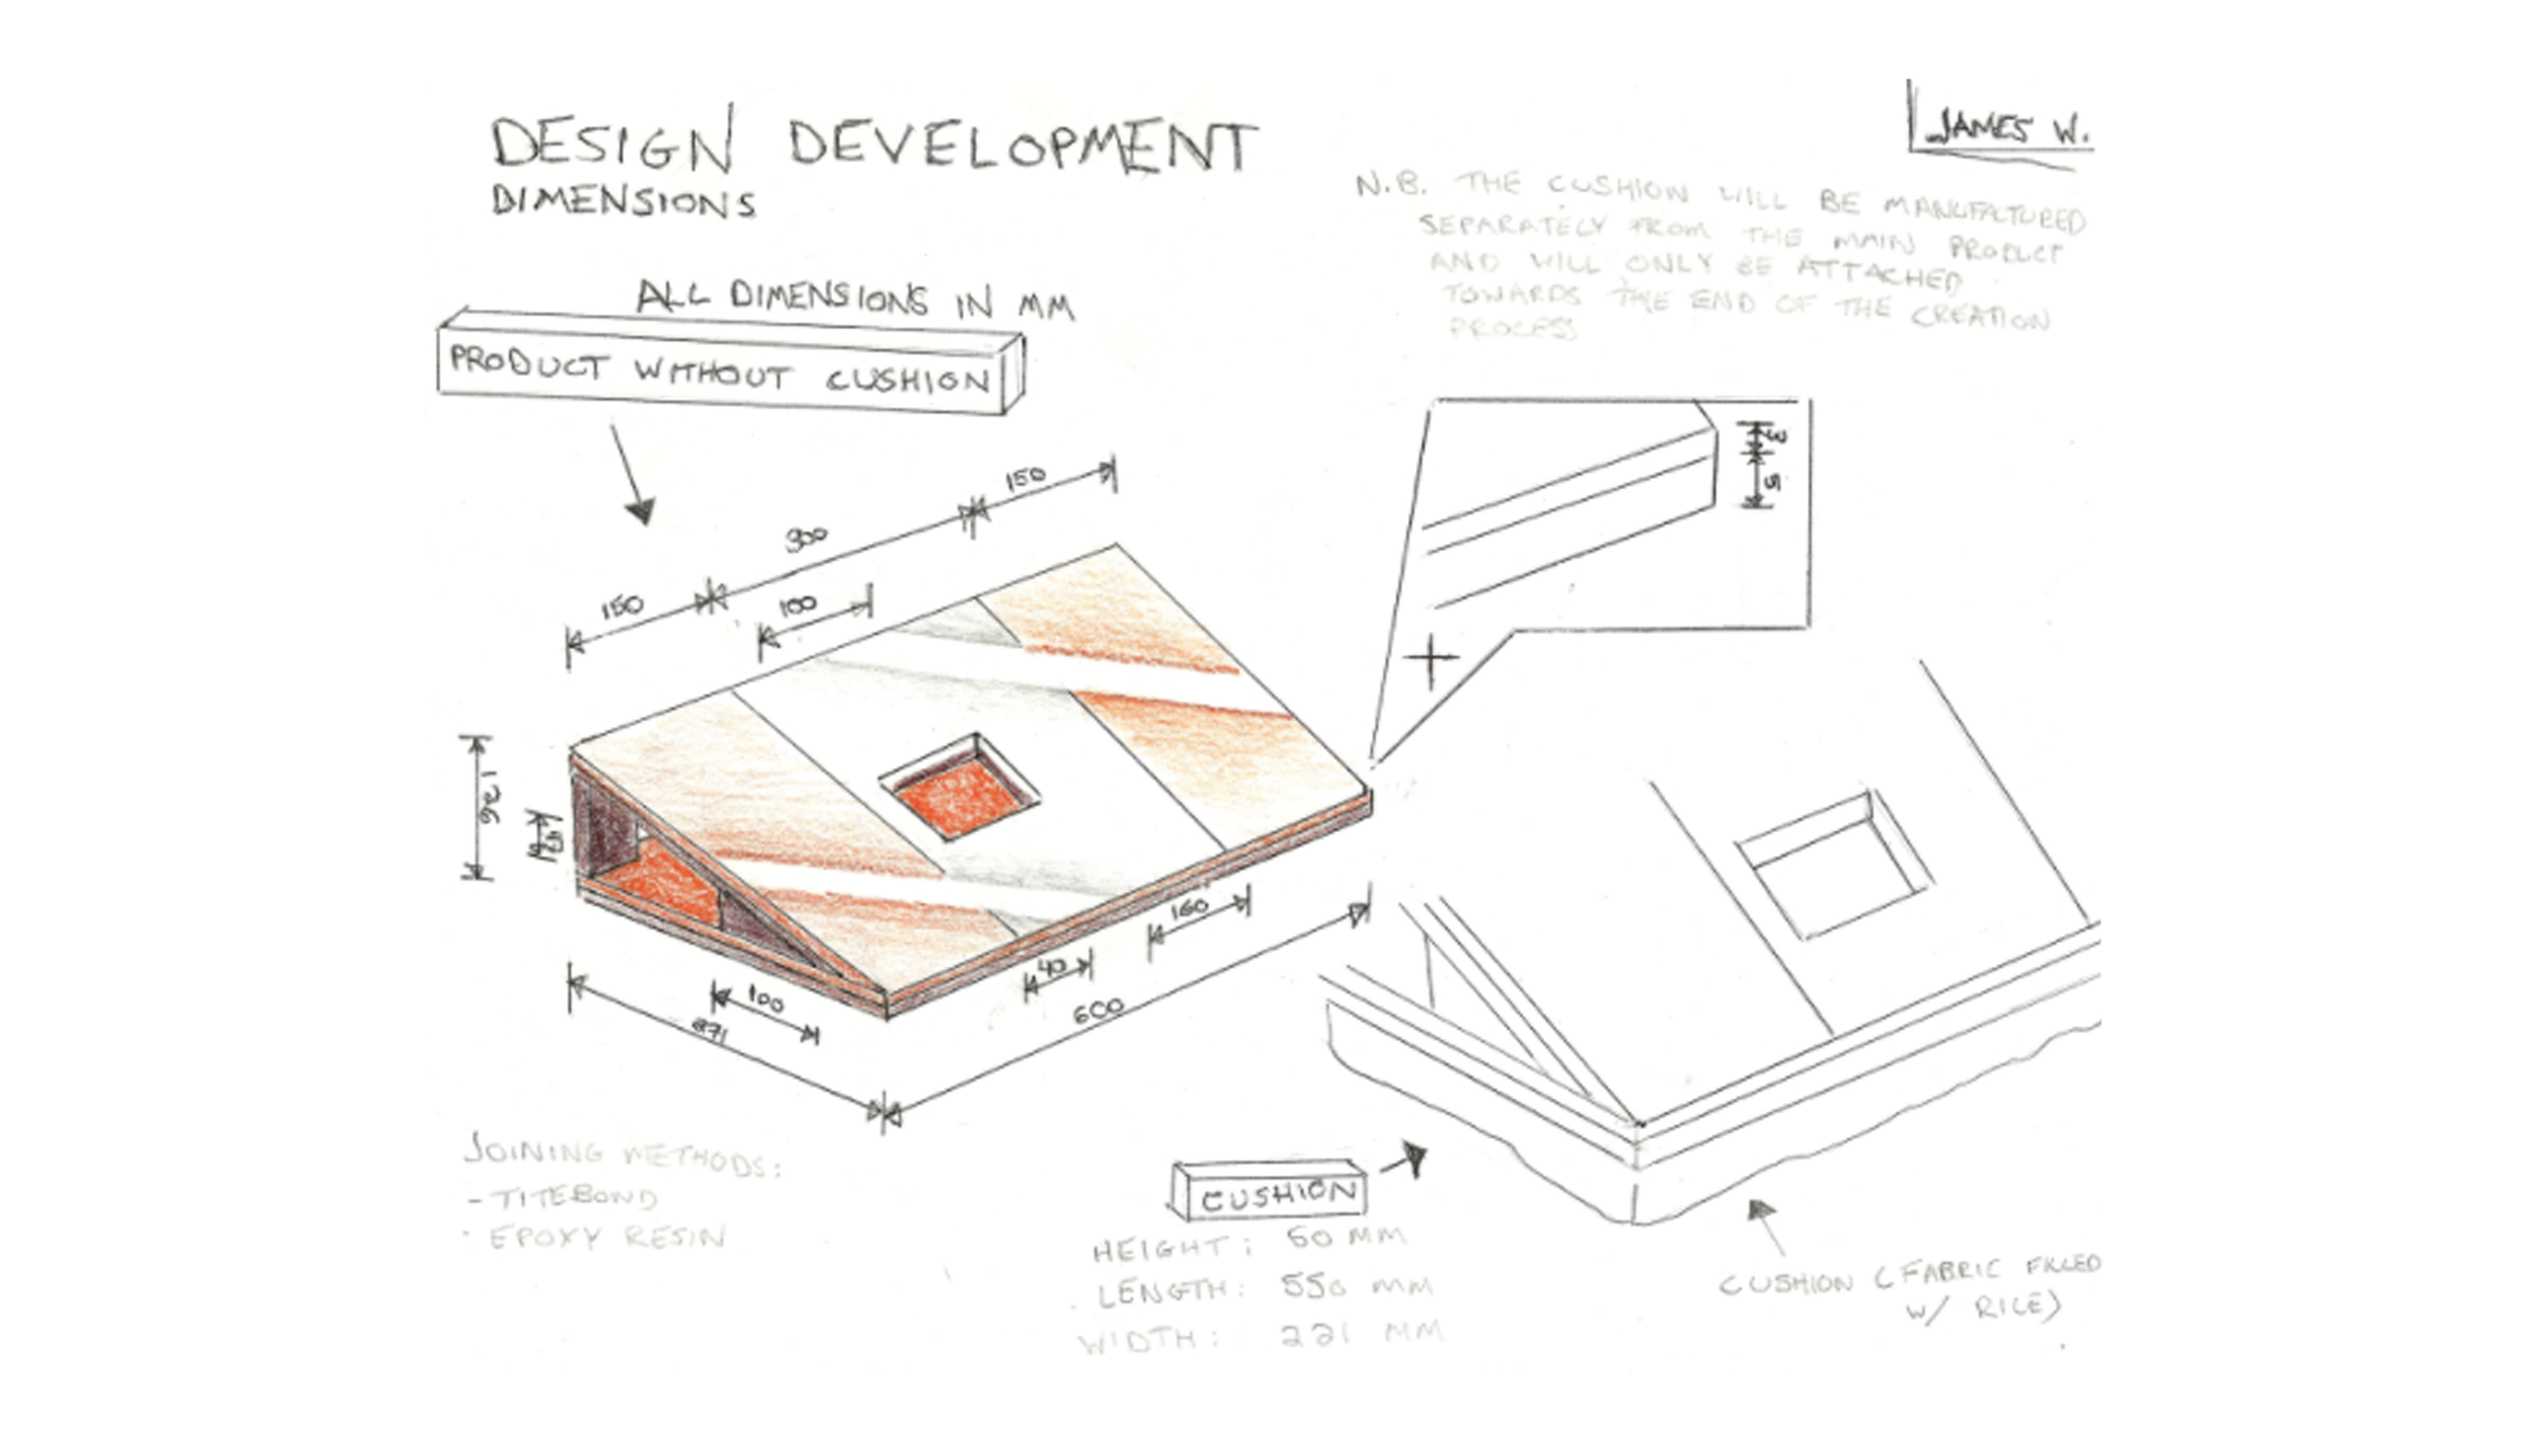 DESIGN DEVELOPMENT
DIMENSIONS
JAMES W.
N.B. THE CUSHION WILL BE MANUFACTURED
SEPARATELY FROM THE MAIN PRODUCT
AND WILL ONLY BE ATTACHED
TOWARDS THE END OF THE CREATION
PROCESS
ALL DIMENSIONS IN MM
PRODUCT WITHOUT CUSHION
150
300
150
100
3
5
126
160
40
100
600
271
JOINING METHODS:
- TITEBOND
- EPOXY RESIN
CUSHION
HEIGHT: 50 MM
LENGTH: 550 MM
WIDTH: 221 MM
CUSHION (FABRIC FILLED
W/ RICE)